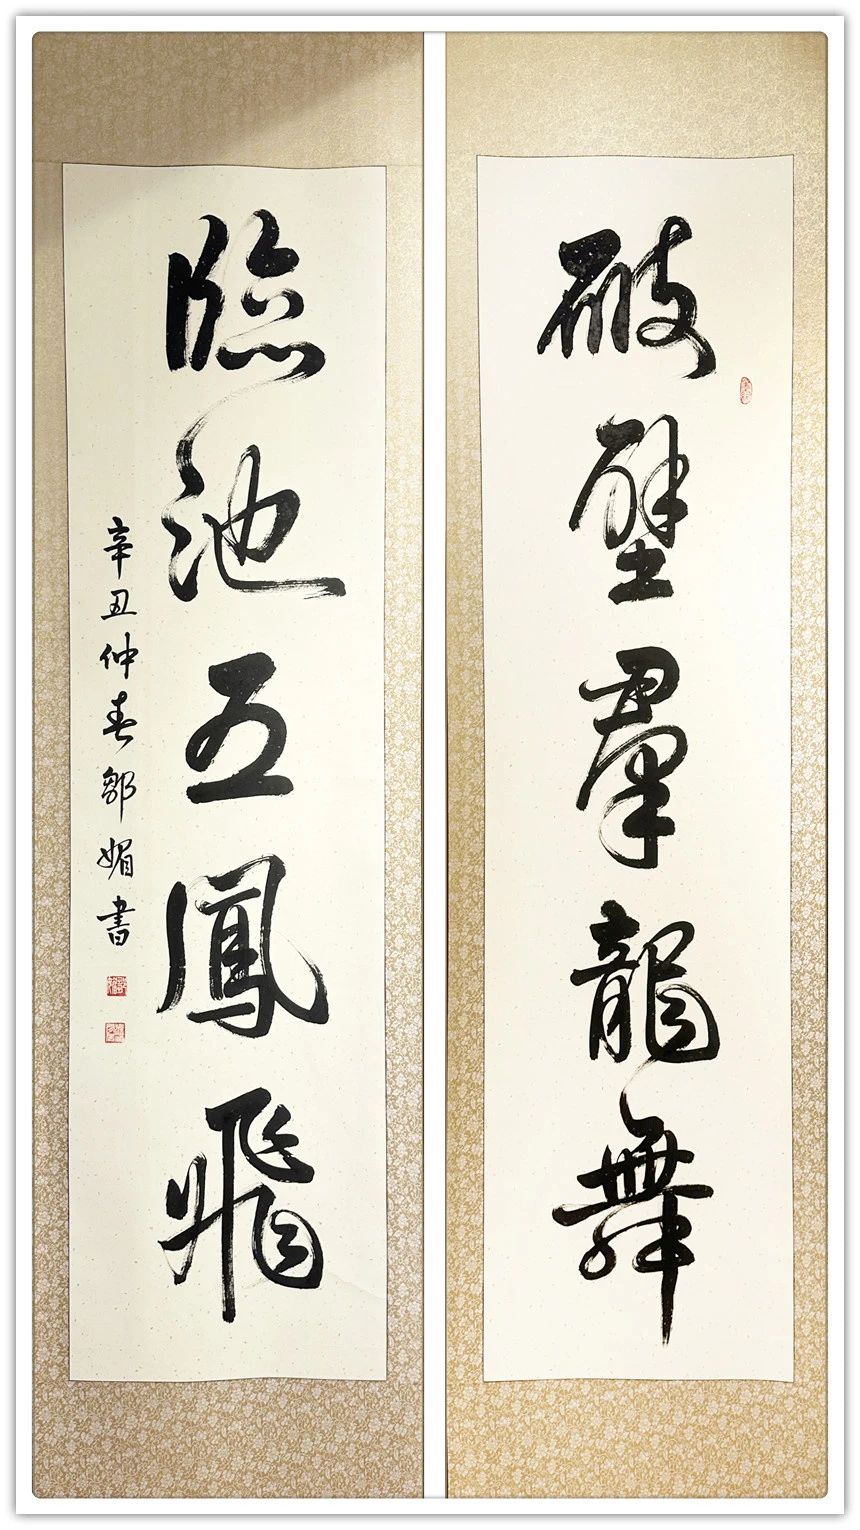 破壁群龍舞
臨池五鳳飛
辛丑仲春鄒媚書